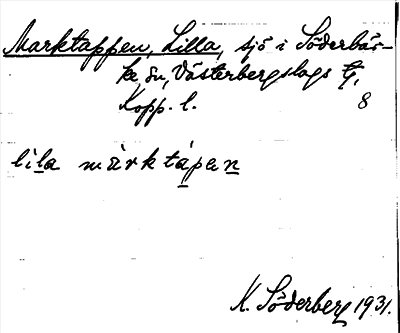 Marktappen, Lilla, sjö i Söderbär-
ke sn, Västerbergslags tg,
Kopp. l. 8
lila märktápen
K. Söderberg 1931.